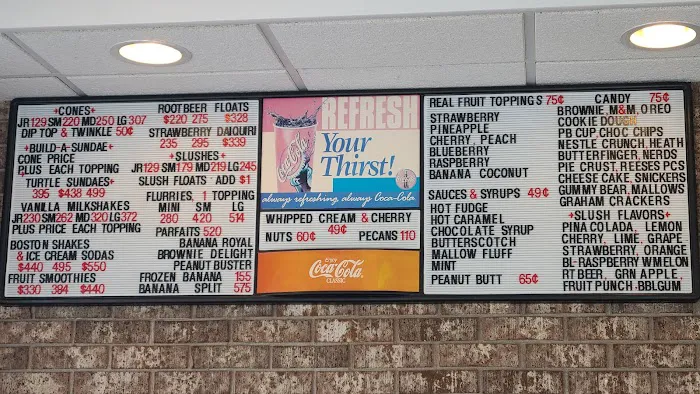 +CONES+
JR129 SM220 MD250 LG307
DIP TOP & TWINKLE 50¢
+BUILD-A-SUNDAE+
CONE PRICE
PLUS EACH TOPPING
TURTLE SUNDAES+
395 $438 499
VANILLA MILKSHAKES
JR230 SM262 MD320 LG372
PLUS PRICE EACH TOPPING
BOSTON SHAKES
& ICE CREAM SODAS
$440 495 $550
FRUIT SMOOTHIES
$330 384 $440
ROOTBEER FLOATS
$220 275 $328
STRAWBERRY DAIQUIRI
235 295 $339
+SLUSHES+
JR129 SM179 MD219 LG245
SLUSH FLOATS ADD $1
FLURRIES, 1 TOPPING
MINI SM LG
280 420 514
PARFAITS 520
BANANA ROYAL
BROWNIE DELIGHT
PEANUT BUSTER
FROZEN BANANA 155
BANANA SPLIT 575
REFRESH
Your
Thirst!
Coca-Cola
always refreshing, always Coca-Cola
WHIPPED CREAM & CHERRY
49¢
NUTS 60¢ PECANS 110
Enjoy
Coca-Cola
CLASSIC
REAL FRUIT TOPPINGS 75¢
STRAWBERRY
PINEAPPLE
CHERRY, PEACH
BLUEBERRY
RASPBERRY
BANANA COCONUT
SAUCES & SYRUPS 49¢
HOT FUDGE
HOT CARAMEL
CHOCOLATE SYRUP
BUTTERSCOTCH
MALLOW FLUFF
MINT
PEANUT BUTT 65¢
CANDY 75¢
BROWNIE, M&M, OREO
COOKIE DOUGH
PB CUP, CHOC CHIPS
NESTLE CRUNCH, HEATH
BUTTERFINGER, NERDS
PIE CRUST, REESES PCS
CHEESE CAKE, SNICKERS
GUMMY BEAR, MALLOWS
GRAHAM CRACKERS
+SLUSH FLAVORS+
PINA COLADA, LEMON
CHERRY, LIME, GRAPE
STRAWBERRY, ORANGE
BL RASPBERRY W MELON
RT BEER, GRN APPLE,
FRUIT PUNCH, BBLGUM